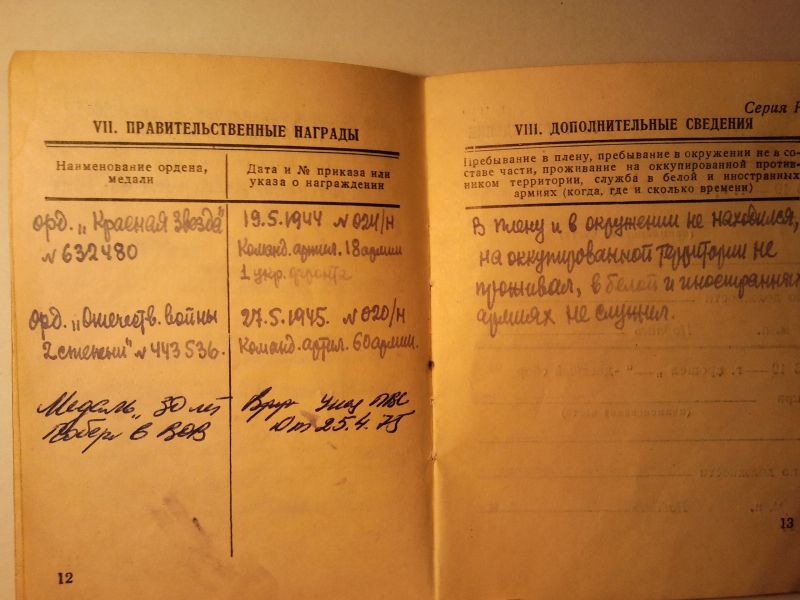 VII. ПРАВИТЕЛЬСТВЕННЫЕ НАГРАДЫ
Наименование ордена, медали
Дата и № приказа или указа о награждении
орд. „Красная Звезда"
№ 632480
19.5.1944 № 024/н
Команд. артил. 18 армии
1 укр. фронта
орд. „Отечеств. войны
2 степени" № 443536.
27.5.1945. № 020/н
Команд. артил. 60 армии.
Медаль „30 лет
Победы в ВОВ
Указ ПВС
От 25.4.75
12
Серия
VIII. ДОПОЛНИТЕЛЬНЫЕ СВЕДЕНИЯ
Пребывание в плену, пребывание в окружении не в со-
ставе части, проживание на оккупированной против-
ником территории, служба в белой и иностранных
армиях (когда, где и сколько времени)
В плену и в окружении не находился,
на оккупированной территории не
проживал, в белой и иностранных
армиях не служил.
13